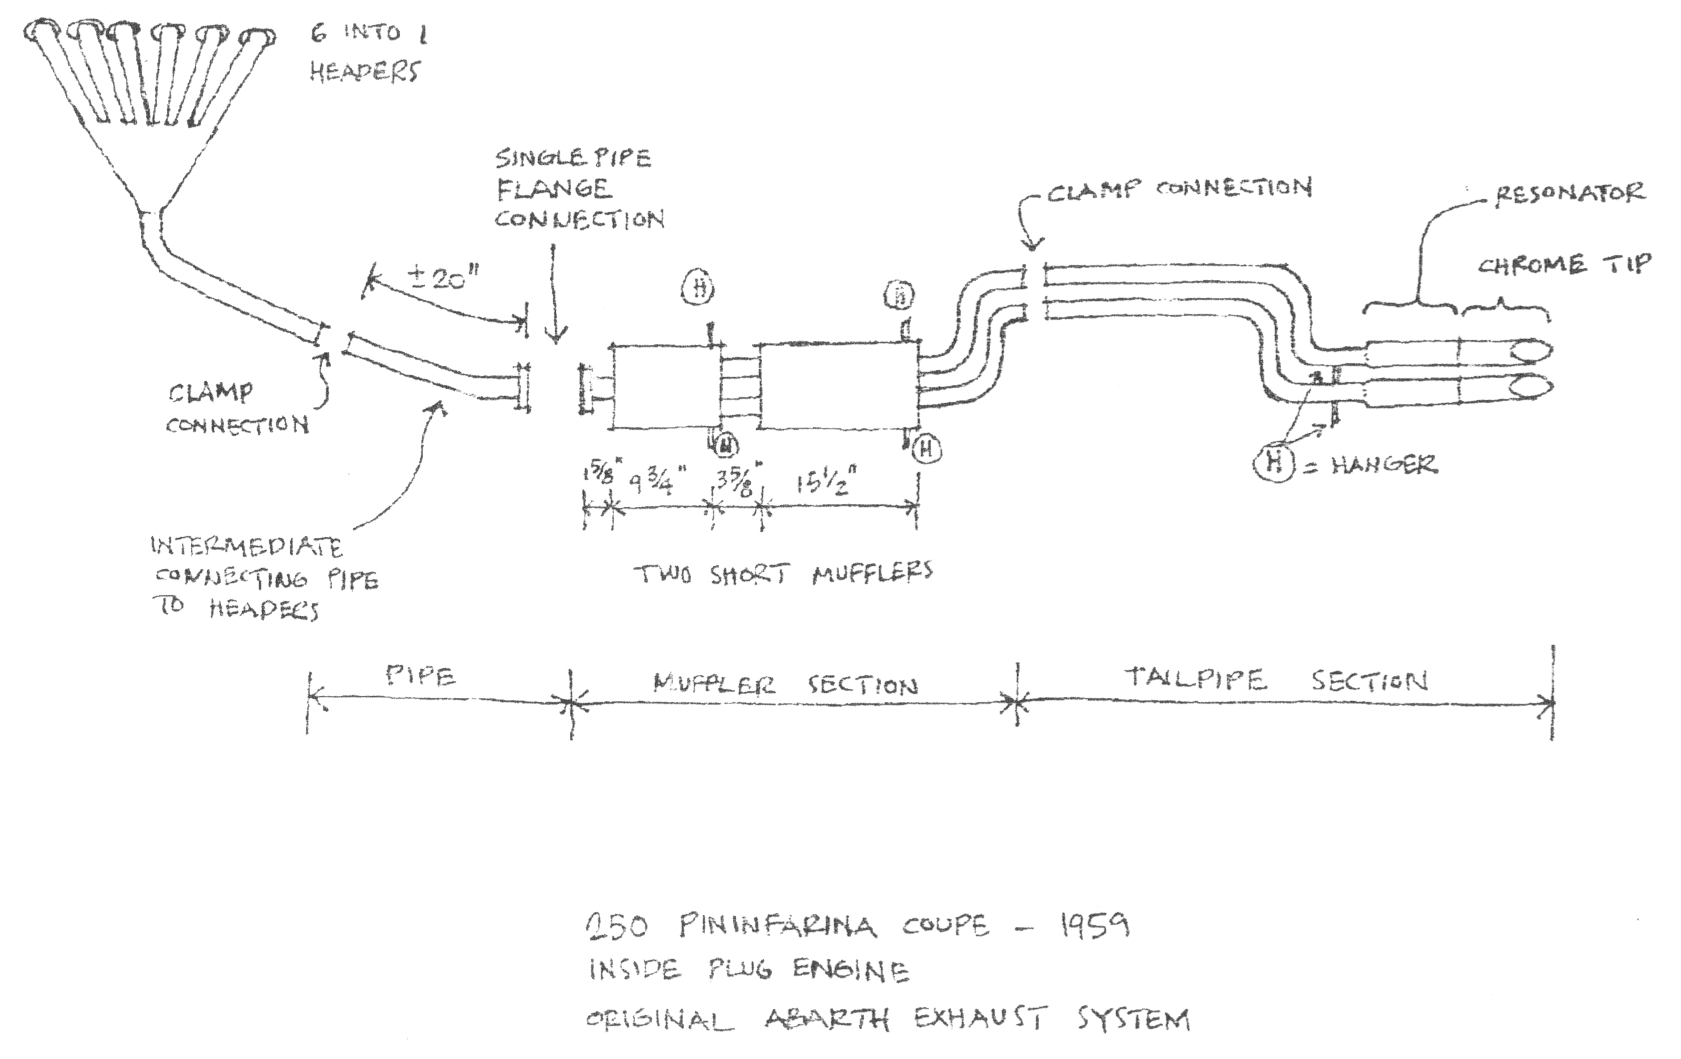 6 INTO 1
HEADERS
SINGLE PIPE
FLANGE
CONNECTION
CLAMP CONNECTION
RESONATOR
CHROME TIP
±20"
H
H
CLAMP
CONNECTION
H
H
H = HANGER
1 5/8" 9 3/4" 3 5/8" 15 1/2"
INTERMEDIATE
CONNECTING PIPE
TO HEADERS
TWO SHORT MUFFLERS
PIPE
MUFFLER SECTION
TAILPIPE SECTION
250 PININFARINA COUPE - 1959
INSIDE PLUG ENGINE
ORIGINAL ABARTH EXHAUST SYSTEM